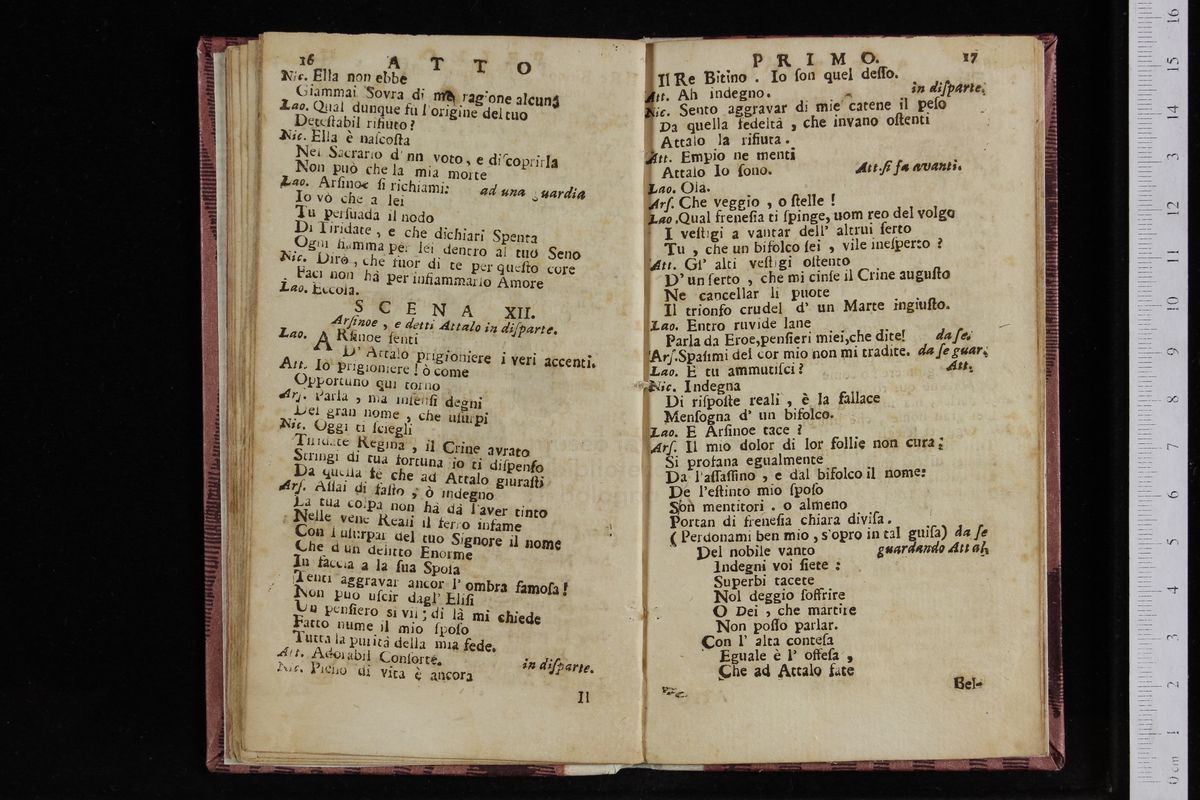 16 ATTO
Nic. Ella non ebbe
Giammai Sovra di me ragione alcuna
Lao. Qual dunque fu l'origine del tuo
Deteſtabil rifiuto?
Nic. Ella è naſcoſta
Nel Sacrario d'un voto, e diſcoprirla
Non può che la mia morte
Lao. Arſinoe ſi richiami: ad una guardia
Io vò che a lei
Tu perſuada il nodo
Di Tiridate, e che dichiari Spenta
Ogni fiamma per lei dentro al tuo Seno
Nic. Dirò, che fuor di te per queſto core
Faci non hà per infiammarlo Amore
Lao. Eccola.
SCENA XII.
Arſinoe, e detti Attalo in diſparte.
Lao. ARſinoe ſenti
D'Attalo prigioniere i veri accenti.
Att. Io prigioniere! ò come
Opportuno qui torno
Arſ. Parla, ma inſenſi degni
Del gran nome, che uſurpi
Nic. Oggi ti ſciegli
Tiridate Regina, il Crine avrato
Stringi di tua fortuna io ti diſpenſo
Da quella fè che ad Attalo giuraſti
Arſ. Aſſai di faſto, ò indegno
La tua colpa non hà dà l'aver tinto
Nelle vene Reali il ferro infame
Con l'uſurpar del tuo Signore il nome
Che d'un delitto Enorme
In faccia a la ſua Spoſa
Tenti aggravar ancor l'ombra famoſa!
Non può uſcir dagl' Eliſi
Un penſiero sì vil; di là mi chiede
Fatto nume il mio ſpoſo
Tutta la purità della mia fede.
Att. Adorabil Conſorte. in diſparte.
Nic. Pieno di vita è ancora
Il
PRIMO. 17
Il Re Bitino. Io ſon quel deſſo.
Att. Ah indegno. in diſparte.
Nic. Sento aggravar di mie catene il peſo
Da quella fedeltà, che invano oſtenti
Attalo la rifiuta.
Att. Empio ne menti
Attalo Io ſono. Att. ſi fa avanti.
Lao. Ola.
Arſ. Che veggio, o ſtelle!
Lao. Qual freneſia ti ſpinge, uom reo del volgo
I veſtigi a vantar dell' altrui ſerto
Tu, che un bifolco ſei, vile ineſperto?
Att. Gl' alti veſtigi oſtento
D'un ſerto, che mi cinſe il Crine auguſto
Ne cancellar li puote
Il trionfo crudel d' un Marte ingiuſto.
Lao. Entro ruvide lane
Parla da Eroe, penſieri miei, che dite! da ſe.
Arſ. Spaſimi del cor mio non mi tradite. da ſe guar.
Lao. E tu ammutiſci? Att.
Nic. Indegna
Di riſpoſte reali, è la fallace
Menſogna d' un bifolco.
Lao. E Arſinoe tace?
Arſ. Il mio dolor di lor follie non cura;
Si profana egualmente
Da l'aſſaſſino, e dal bifolco il nome:
De l'eſtinto mio ſpoſo
Son mentitori. o almeno
Portan di freneſia chiara diviſa.
(Perdonami ben mio, s'opro in tal guiſa) da ſe
Del nobile vanto guardando Attal.
Indegni voi ſiete:
Superbi tacete
Nol deggio ſoffrire
O Dei, che martire
Non poſſo parlar.
Con l' alta conteſa
Eguale è l' offeſa,
Che ad Attalo fate
Bel-